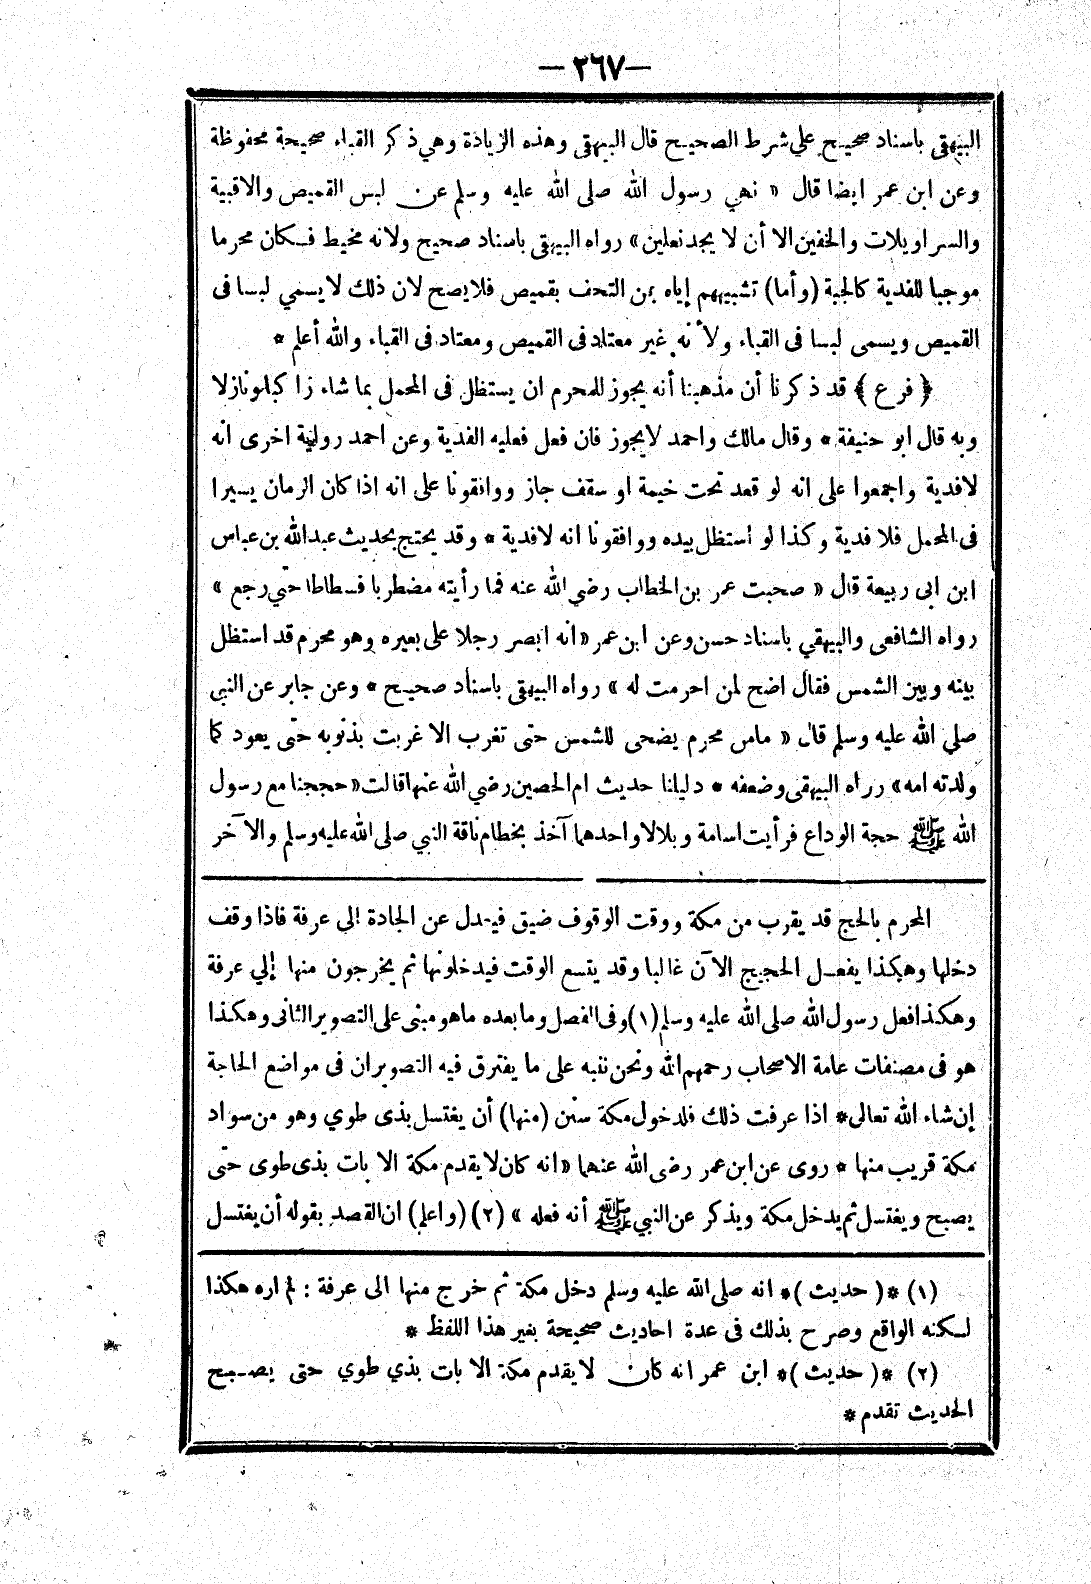 — ٢٦٧ —
البيهقى باسناد صحيح علي شرط الصحيح قال البيهقى وهذه الزيادة وهي ذكر القباء صحيحة محفوظة
وعن ابن عمر ايضا قال « نهي رسول الله صلى الله عليه وسلم عن لبس القميص والاقبية
والسراويلات والخفين الا أن لا يجد نعلين» رواه البيهقى باسناد صحيح ولانه مخيط فكان محرما
موجبا للفدية كالجبة (وأما) تشبيههم إياه بمن التحف بقميص فلا يصح لان ذلك لا يسمي لبسا فى
القميص ويسمى لبسا فى القباء ولأنه غير معتاد فى القميص ومعتاد فى القباء والله أعلم *
﴿ فرع ﴾ قد ذكرنا أن مذهبنا أنه يجوز للمحرم ان يستظل فى المحمل بما شاء راكبا ونازلا
وبه قال ابو حنيفة * وقال مالك واحمد لا يجوز فان فعل فعليه الفدية وعن احمد رواية اخرى انه
لا فدية واجمعوا على انه لو قعد تحت خيمة او سقف جاز ووافقونا على انه اذا كان الزمان يسيرا
فى المحمل فلا فدية وكذا لو استظل بيده ووافقونا انه لا فدية * وقد يحتج بحديث عبد الله بن عباس
ابن ابى ربيعة قال « صحبت عمر بن الخطاب رضي الله عنه فما رأيته مضطربا فسطاطا حتي رجع »
رواه الشافعى والبيهقي باسناد حسن وعن ابن عمر «انه ابصر رجلا على بعيره وهو محرم قد استظل
بينه وبين الشمس فقال اضح لمن احرمت له » رواه البيهقى باسناد صحيح * وعن جابر عن النبى
صلي الله عليه وسلم قال « مامن محرم يضحى للشمس حتى تغرب الا غربت بذنوبه حتى يعود كما
ولدته امه» رواه البيهقى وضعفه * دليلنا حديث ام الحصين رضي الله عنها قالت «حججنا مع رسول
الله ﷺ حجة الوداع فرأيت اسامة وبلالا واحدهما آخذ بخطام ناقة النبي صلى الله عليه وسلم والآخر
المحرم بالحج قد يقرب من مكة ووقت الوقوف ضيق فيعدل عن الجادة الى عرفة فاذا وقف
دخلها وهكذا يفعل الحجيج الآن غالبا وقد يتسع الوقت فيدخلونها ثم يخرجون منها إلي عرفة
وهكذا فعل رسول الله صلى الله عليه وسلم (١) وفى الفصل وما بعده ما هو مبنى على التصوير الثانى وهكذا
هو فى مصنفات عامة الاصحاب رحمهم الله ونحن ننبه على ما يفترق فيه التصويران فى مواضع الحاجة
إن شاء الله تعالى* اذا عرفت ذلك فلدخول مكة سنن (منها) أن يغتسل بذى طوي وهو من سواد
مكة قريب منها * روى عن ابن عمر رضى الله عنهما «انه كان لا يقدم مكة الا بات بذى طوى حتى
يصبح ويغتسل ثم يدخل مكة ويذكر عن النبي ﷺ أنه فعله » (٢) (واعلم) ان القصد بقوله أن يغتسل
(١) *( حديث )* انه صلى الله عليه وسلم دخل مكة ثم خرج منها الى عرفة : لم اره هكذا
لكنه الواقع وصرح بذلك فى عدة احاديث صحيحة بغير هذا اللفظ *
(٢) *( حديث )* ابن عمر انه كان لا يقدم مكة الا بات بذي طوي حتى يصبح
الحديث تقدم *